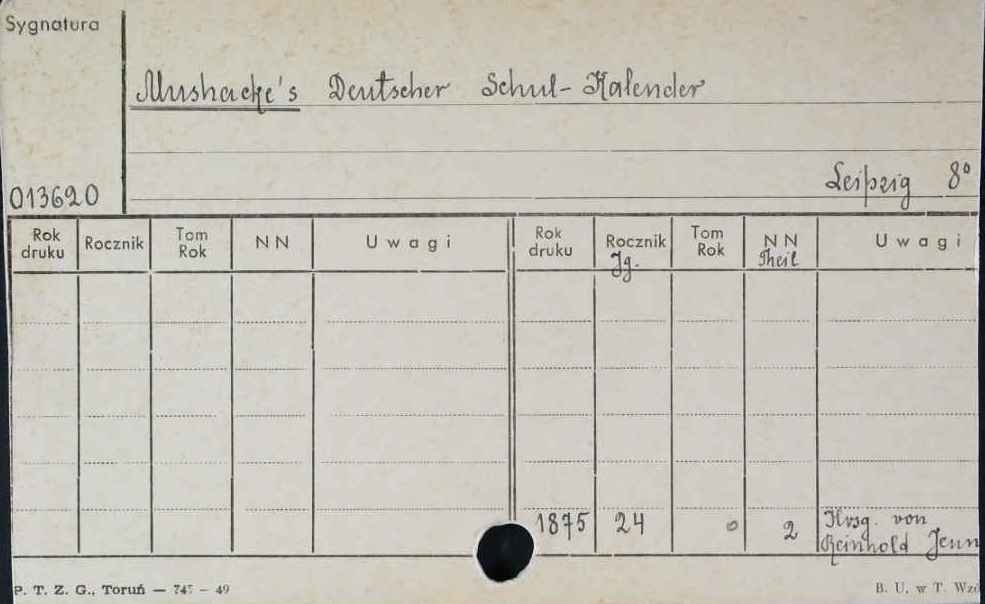 Sygnatura
Mushacke's Deutscher Schul-Kalender
Leipzig 8°
013620
Rok druku Rocznik Tom Rok NN Uwagi Rok druku Rocznik Jg. Tom Rok NN Theil Uwagi
1875 24 0 2 Hrsg. von
Reinhold Jenn
P. T. Z. G., Toruń — 747 — 49 B. U. w T. Wzó